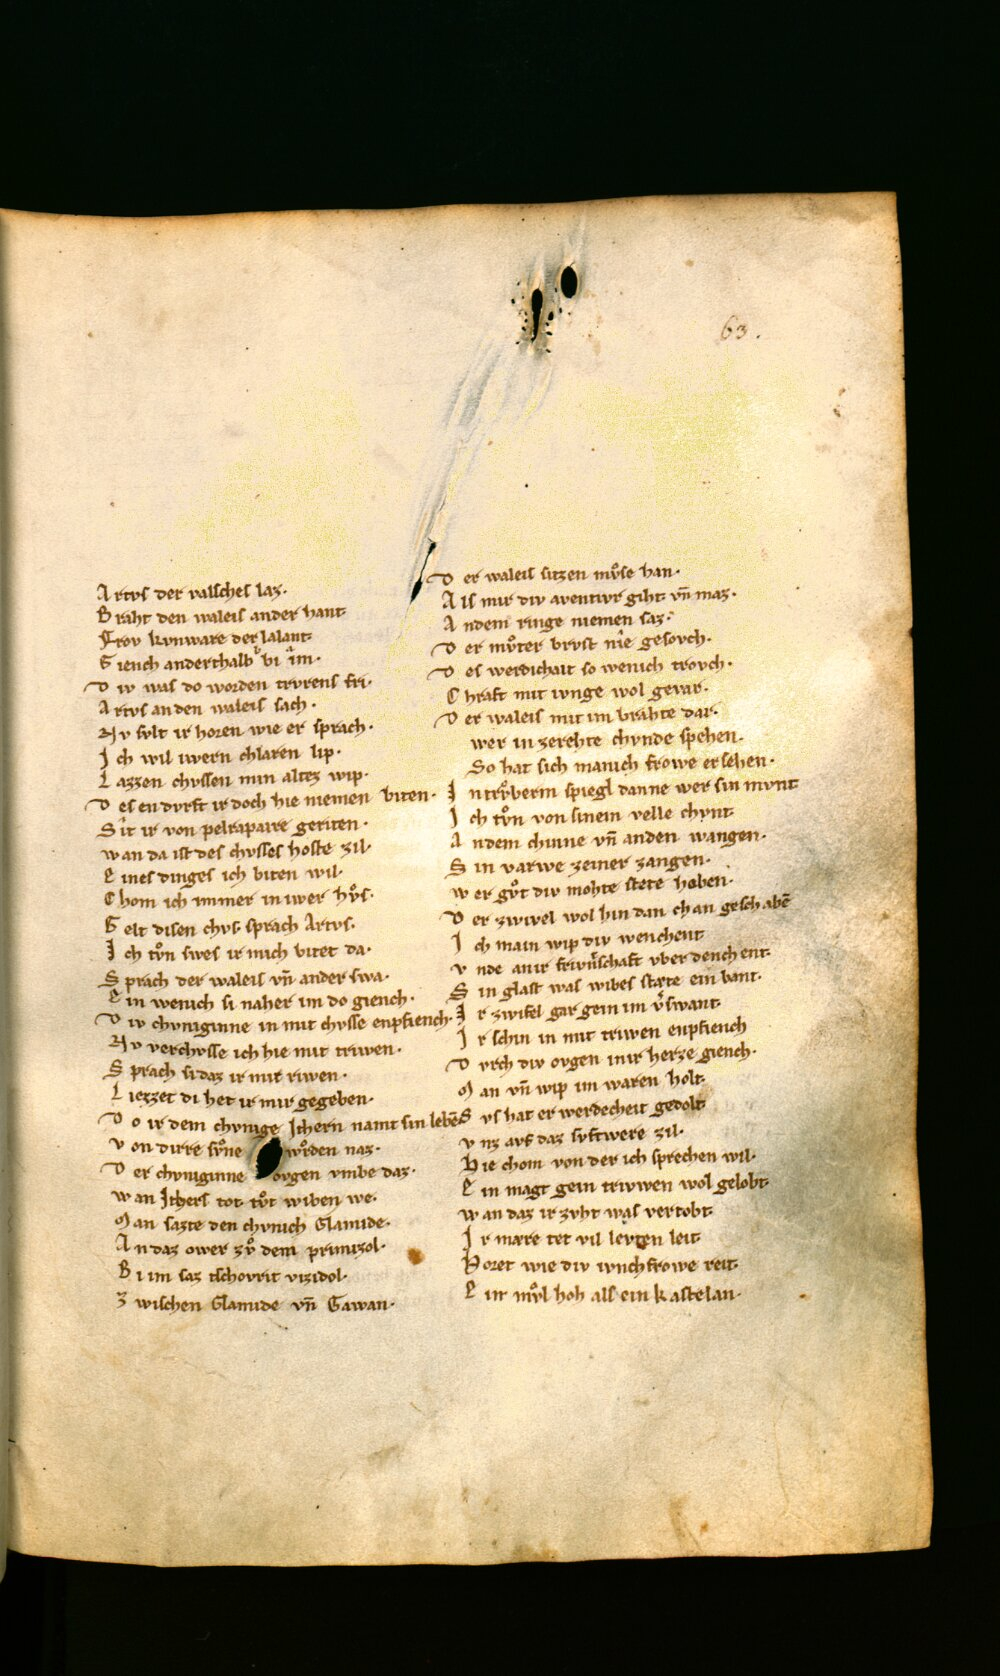 63.
Artvs der valsches laz.
Braht den waleis ander hant
Frov kvnware der lalant
Giench anderthalb bi im.
Div was do worden trvrens fri.
Artvs an den waleis sach.
Nv svlt ir horen wie er sprach.
Ich wil iwern chlaren lip.
Lazzen chvssen min altez wip.
Des endvrft ir doch hie niemen biten.
Sit ir von pelrapaire geriten.
wan da ist des chvsses hoste zil.
Eines dinges ich biten wil.
Chom ich immer in iwer hvͦs.
Gelt disen chvs. sprach Artvs.
Ich tvͦn swes ir mich bitet da.
Sprach der waleis vn̄ ander swa.
Ein wenich si naher im do giench.
Div chvniginne in mit chvsse enpfiench.
Nv verchvsse ich hie mit triwen.
Sprach si daz ir mit riwen.
Liezzet di het ir mir gegeben.
Do ir dem chvnige Ithern namt sin lebē
von dirre svͦne wrͦden naz.
Der chvniginne ovgen vmbe daz.
wan Ithers tot tvͦt wiben we.
Man sazte den chvnich Glamide.
An daz ower zvͦ dem primizol.
Bi im saz tschovrit vizidol.
Zwischen Glamide vn̄ Gawan.
Der waleis sitzen mvͦse han.
Als mir div aventivr giht vn̄ maz.
An dem ringe niemen saz.
Der mvͦter brvst nie gesovch.
Des werdichait so wenich trovch.
Chraft mit ivnge wol gevar.
Der waleis mit im brahte dar.
wer in zerehte chvnde spehen.
So hat sich manich frowe ersehen.
In trvͦberm spiegl danne wer sin mvnt
Ich tvͦn von sinem velle chvnt
An dem chinne vn̄ an den wangen.
Sin varwe zeiner zangen.
wer gvͦt div mohte stete haben.
Der zwivel wol hin dan chan geschabē
Ich main wip div wenchent
vnde an ir frivn̄schaft vber denchent.
Sin glast was wibes stæte ein bant.
Ir zwifel gar gein im v̄swant
Ir schin in mit triwen enpfiench
Dvrch div ovgen in ir herze giench.
Man vn̄ wip im waren holt.
Svs hat er werdecheit gedolt
vnz avf daz svftwere zil.
Hie chom von der ich sprechen wil.
Ein magt gein trivwen wol gelobt.
wan daz ir zvht was vertobt
Ir mære tet vil levten leit
Horet wie div ivnchfrowe reit.
Ein mvͦl hoh als ein kastelan.